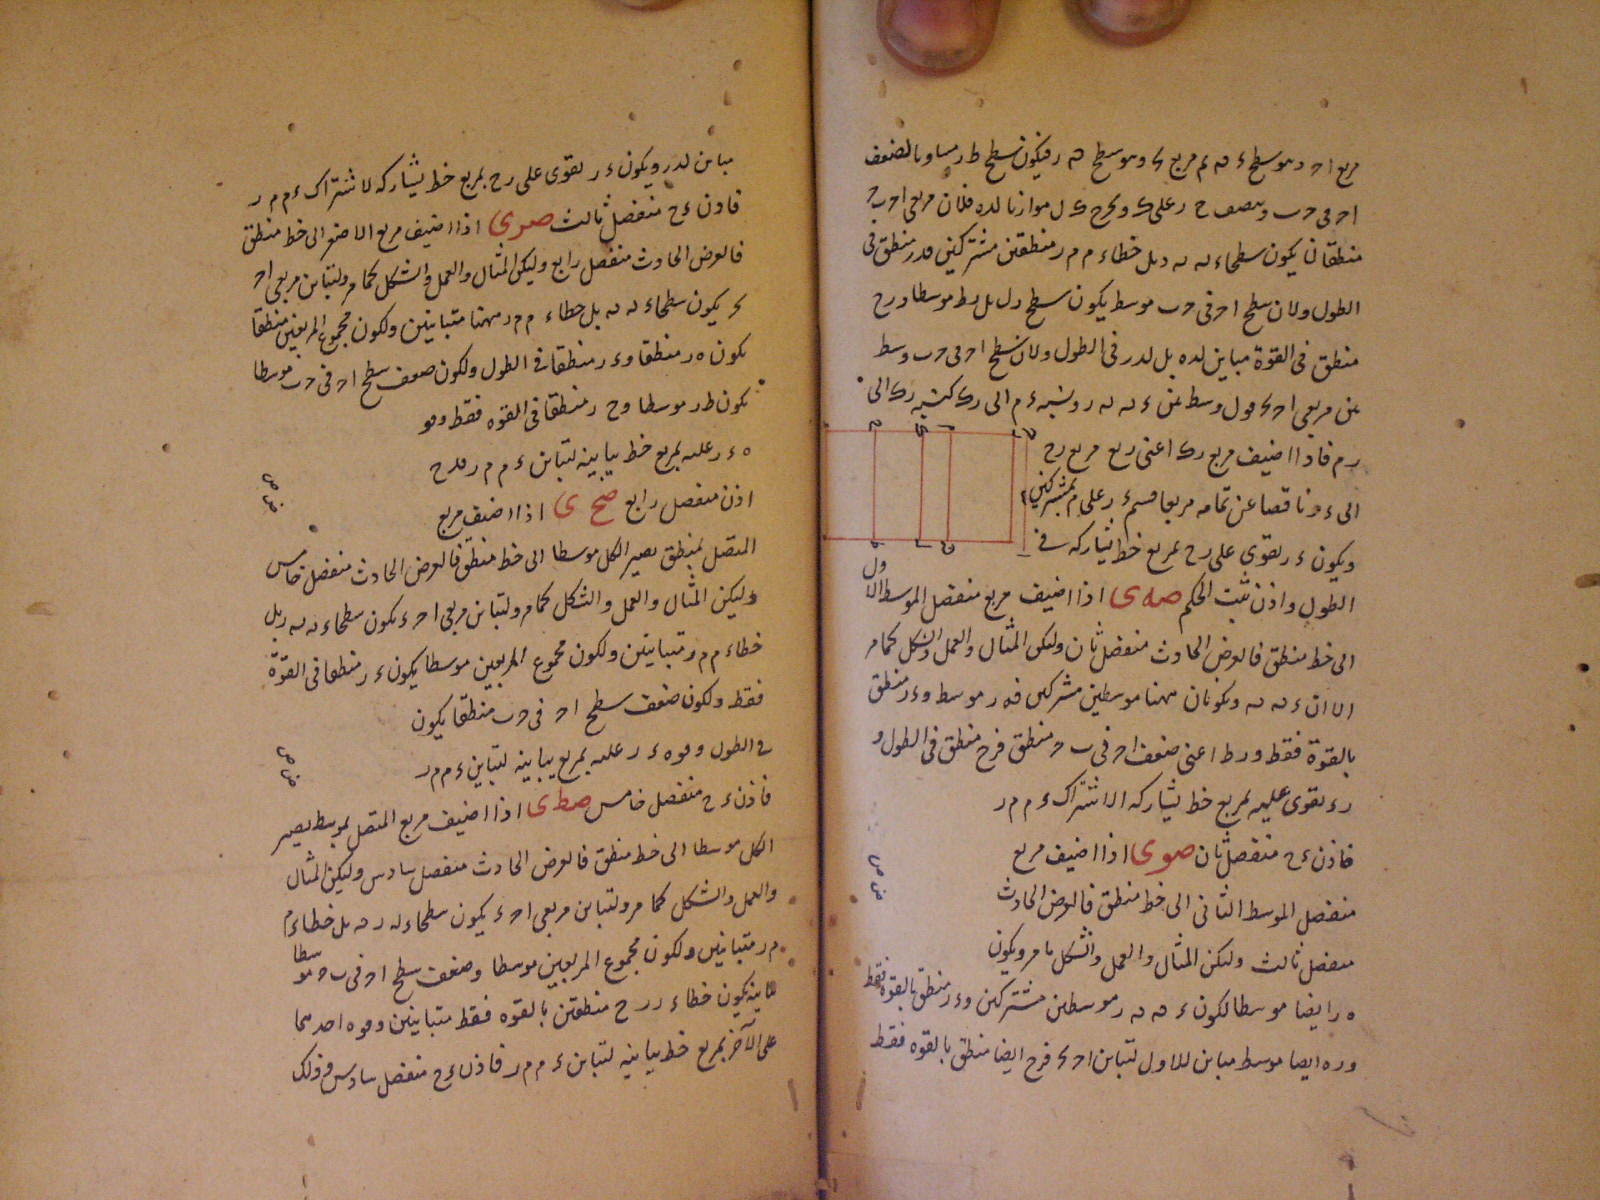 مربع ا ح د هو سطح ء ه ه م مربع ح ب وهو سطح ه ه ر فيكون سطح ط ر مساويا لضعف
ا ح فى ح ب وننصف ح ر على ك ونخرج ك ل موازيا لده فلان مربعى ا ح ب ح
منطقان يكون سطحا ء ه ه ر بل خطا ء م م ر منطقين مشتركين فدر منطق فى
الطول ولان سطح ا ح فى ح ب موسط يكون سطح ر ل بل ر ط موسطا و ر ح
منطق فى القوة مباين لده بل لدر فى الطول ولان سطح ا ح فى ح ب وسط
بين مربعى ا ح ح ب فرل وسط بين ء ه ه ر ونسبة ء م الى ر ك كنسبة ر ك الى
ر م فاذا اضيف مربع ر ك اعنى ربع مربع ر ح
الى ء ر ناقصا عن تمامه مربعا قسم ء ر على م بمشتركين
ويكون ء ر يقوى على ر ح بمربع خط يشاركه فى
الطول واذن ثبت الحكم صه ى اذا اضيف مربع منفصل الموسط الاول
الى خط منطق فالعرض الحادث منفصل ثان وليكن المثال والعمل والشكل كما مر
الا ان ء ه ه ر يكونان ههنا موسطين مشتركين فه ر موسط و ء ر منطق
بالقوة فقط و ر ط اعنى ضعف ا ح فى ب ح منطق فر ح منطق فى الطول و
ر ء يقوى عليه بمربع خط يشاركه لاشتراك ء م م ر
فاذن ء ح منفصل ثان صو ى اذا اضيف مربع
منفصل الموسط الثانى الى خط منطق فالعرض الحادث
منفصل ثالث وليكن المثال والعمل والشكل ما مر ويكون
ه ر ايضا موسطا لكون ء ه ه ر موسطين مشتركين و ء ر منطق بالقوة فقط
و ر ه ايضا موسط مباين للاول لتباين ا ح ح ب فر ح ايضا منطق بالقوه فقط
مباين لدر ويكون ء ر يقوى على ر ح بمربع خط يشاركه لاشتراك ء م م ر
فاذن ء ح منفصل ثالث صر ى اذا اضيف مربع الاصغر الى خط منطق
فالعرض الحادث منفصل رابع وليكن المثال والعمل والشكل كما مر ولتباين مربعى ا ح
ح ب يكون سطحا ء ه ه ر بل خطا ء م م ر ههنا متباينين ولكون مجموع المربعين منطقا
يكون ه ر منطقا و ء ر منطقا فى الطول ولكون ضعف سطح ا ح فى ح ب موسطا
يكون ط ر موسطا و ح ر منطقا فى القوه فقط وهو
ه ء ر عليه بمربع خط يباينه لتباين ء م م ر فدح
اذن منفصل رابع صح ى اذا اضيف مربع
المتصل بمنطق يصير الكل موسطا الى خط منطق فالعرض الحادث منفصل خامس
وليكن المثال والعمل والشكل كما مر ولتباين مربعى ا ح ء يكون سطحا ء ه ه ر بل
خطا ء م م ر متباينين ولكون مجموع المربعين موسطا يكون ء ر منطقا فى القوة
فقط ولكون ضعف سطح ا ح فى ح ب منطقا يكون
فى الطول وقوه ء ر عليه بمربع يباينه لتباين ء م م ر
فاذن ء ح منفصل خامس صط ى اذا اضيف مربع المتصل بموسط يصير
الكل موسطا الى خط منطق فالعرض الحادث منفصل سادس وليكن المثال
والعمل والشكل كما مر ولتباين مربعى ا ح ء يكون سطحا ء ه ر ه بل خطا ء م
م ر متباينين ولكون مجموع المربعين موسطا وضعف سطح ا ح فى ب ح موسطا
يباينه يكون خطا ء ر ر ح منطقين بالقوه فقط متباينين وقوه احدهما
على الآخر بمربع خط يباينه لتباين ء م م ر فاذن ء ح منفصل سادس وذلك